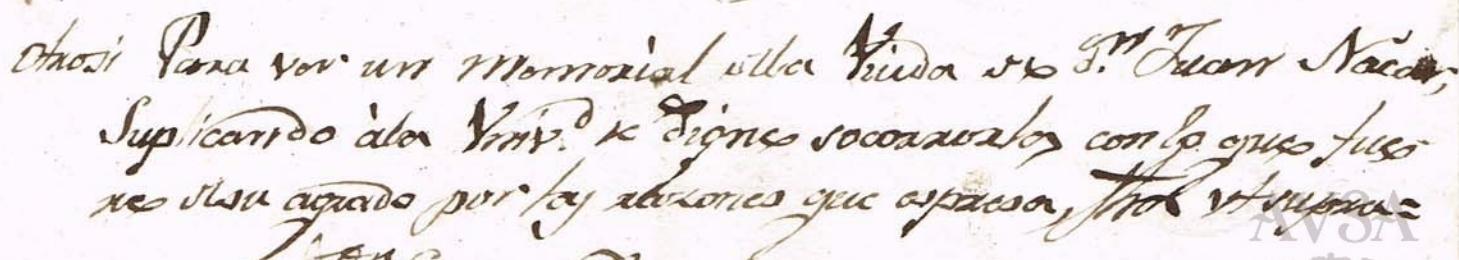 otrosi Para ver un memorial dela Viuda de Dn Juan Nacar,
Suplicando àla Univ.d se digne socorrerla, con lo que fue
re de su agrado por las razones que expresa, fhâ ut supra=
AVSA